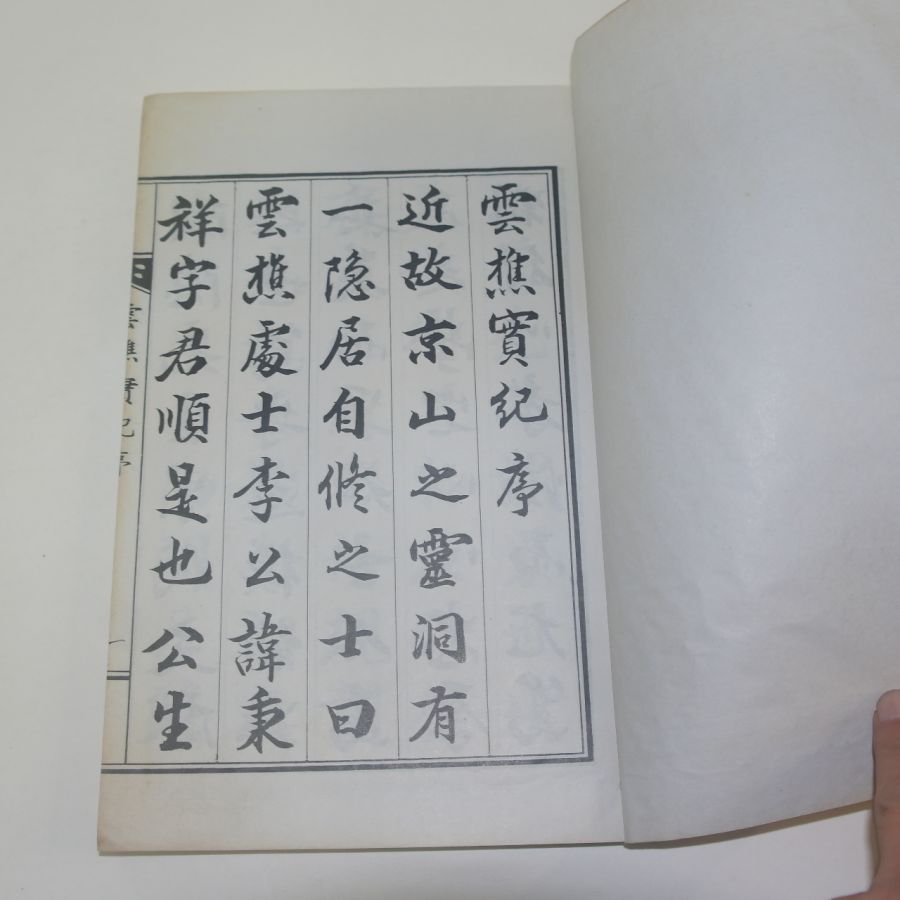 雲樵實紀序
近故京山之靈洞有
一隐居自修之士曰
雲樵處士李公諱秉
祥字君順是也公生
雲樵實紀序
一